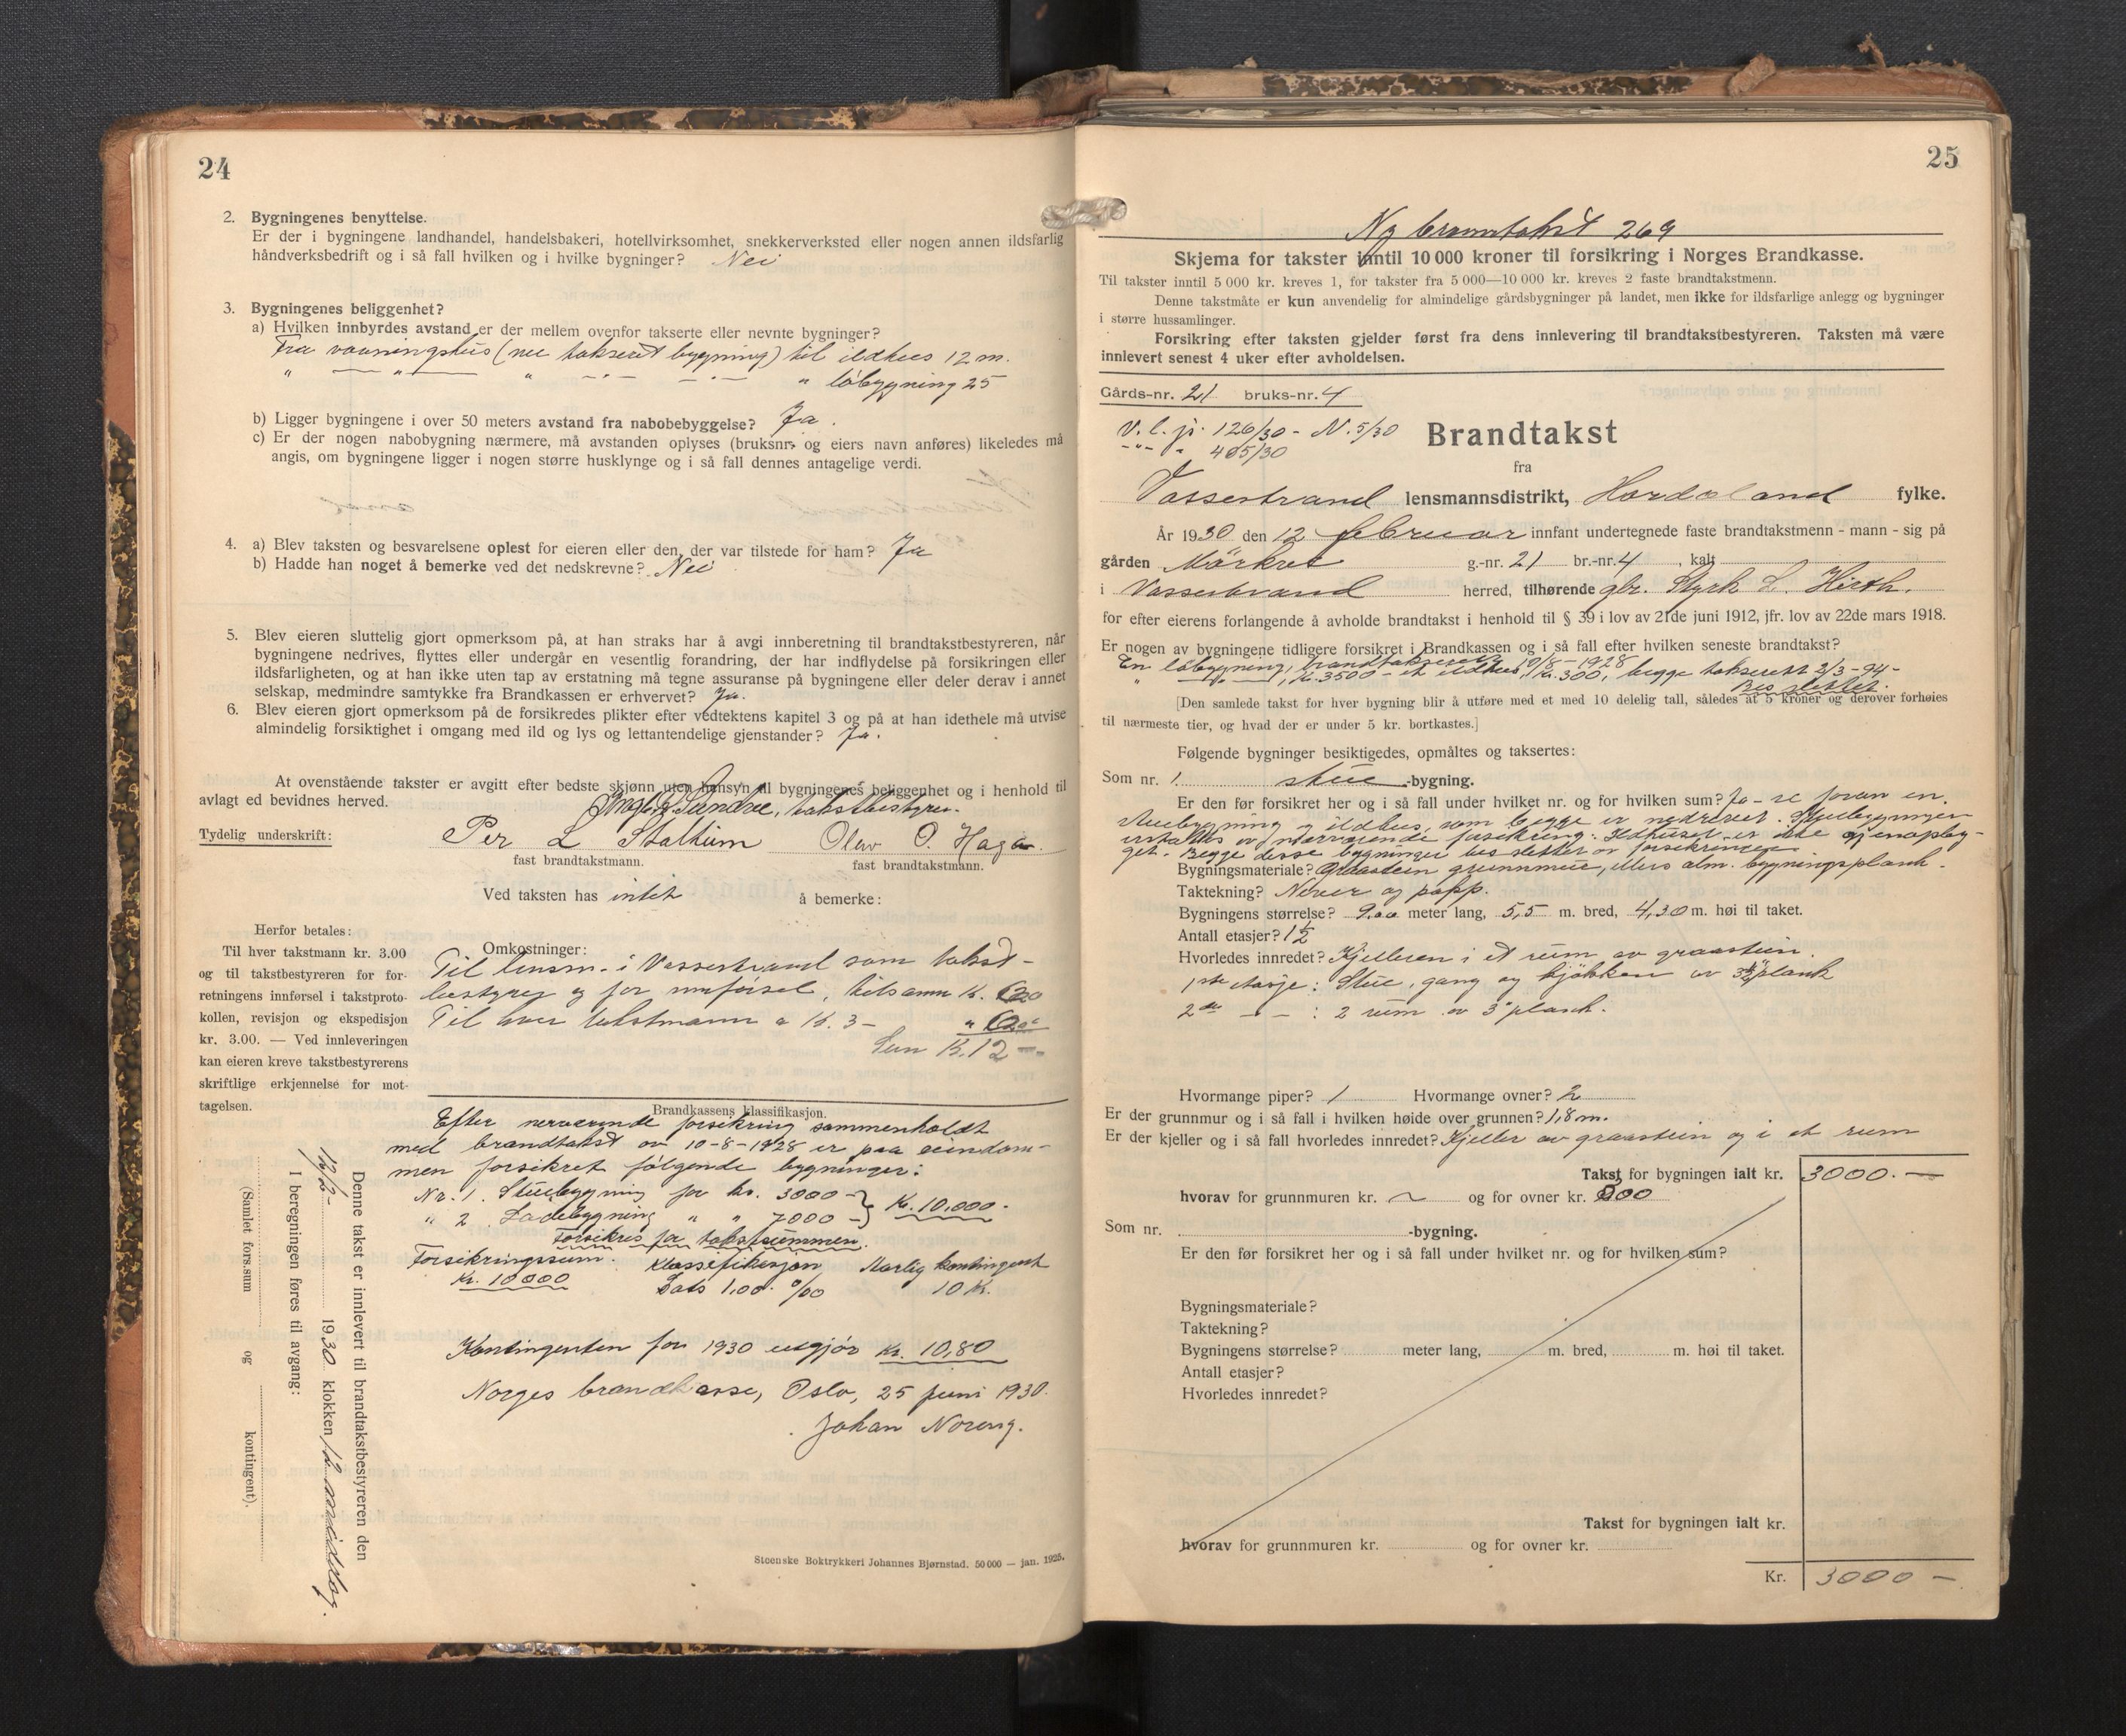 24
2. Bygningenes benyttelse.
Er der i bygningene landhandel, handelsbakeri, hotellvirksomhet, snekkerverksted eller nogen annen ildsfarlig
håndverksbedrift og i så fall hvilken og i hvilke bygninger? Nei
3. Bygningenes beliggenhet?
a) Hvilken innbyrdes avstand er der mellem ovenfor takserte eller nevnte bygninger?
Fra vaaningshus (nu taksert bygning) til ildhus 12 m.
" — " — " — " — — " — " løbygning 25
b) Ligger bygningene i over 50 meters avstand fra nabobebyggelse? Ja.
c) Er der nogen nabobygning nærmere, må avstanden oplyses (bruksnr. og eiers navn anføres) likeledes må
angis, om bygningene ligger i nogen større husklynge og i så fall dennes antagelige verdi.
4. a) Blev taksten og besvarelsene oplest for eieren eller den, der var tilstede for ham? Ja
b) Hadde han noget å bemerke ved det nedskrevne? Nei
5. Blev eieren sluttelig gjort opmerksom på, at han straks har å avgi innberetning til brandtakstbestyreren, når
bygningene nedrives, flyttes eller undergår en vesentlig forandring, der har indflydelse på forsikringen eller
ildsfarligheten, og at han ikke uten tap av erstatning må tegne assuranse på bygningene eller deler derav i annet
selskap, medmindre samtykke fra Brandkassen er erhvervet? Ja.
6. Blev eieren gjort opmerksom på de forsikredes plikter efter vedtektens kapitel 3 og på at han idethele må utvise
almindelig forsiktighet i omgang med ild og lys og lettantendelige gjenstander? Ja.
At ovenstående takster er avgitt efter bedste skjønn uten hensyn til bygningenes beliggenhet og i henhold til
avlagt ed bevidnes herved.
Sundve, takstbestyrer.
Tydelig underskrift:
Per L Stalheim Olav O. Haga.
fast brandtakstmann. fast brandtakstmann.
Ved taksten has intet å bemerke:
Herfor betales:
Til hver takstmann kr. 3.00
og til takstbestyreren for for-
retningens innførsel i takstproto-
kollen, revisjon og ekspedisjon
kr. 3.00. — Ved innleveringen
kan eieren kreve takstbestyrerens
skriftlige erkjennelse for mot-
tagelsen.
Omkostninger:
Til lensm. i Vossestrand som takst-
bestyrer og for innførsel, tilsamm K.
Til hver takstmann a K. 3 -
Sum K. 12 —
Brandkassens klassifikasjon.
Efter nerværende forsikring sammenholdt
med brandtakst av 10-8-1928 er paa eiendom-
men forsikret følgende bygninger:
Nr. 1. Stuebygning for kr. 3000 -
" 2. Ladebygning " " 7000 - } Kr. 10,000.-
Forsikres for takstsummen.
Forsikringssum. Klassifikasjon Aarlig kontingent
Kr. 10000 Sats 1,00 o/oo 10 K.
Kontingenten for 1930 utgjør Kr. 10,80
Norges brandkasse, Oslo, 25 juni 1930.
Johan Noreng.
Denne takst er innlevert til brandtakstbestyreren den
12/2- 1930 klokken 12 middag.
I beregningen føres til avgang:
(Samlet fors.sum og kontingent).
Steenske Boktrykkeri Johannes Bjørnstad. 50 000 — jan. 1925.
25
Ny branntakst 269
Skjema for takster inntil 10 000 kroner til forsikring i Norges Brandkasse.
Til takster inntil 5 000 kr. kreves 1, for takster fra 5 000—10 000 kr. kreves 2 faste brandtakstmenn.
Denne takstmåte er kun anvendelig for almindelige gårdsbygninger på landet, men ikke for ildsfarlige anlegg og bygninger
i større hussamlinger.
Forsikring efter taksten gjelder først fra dens innlevering til brandtakstbestyreren. Taksten må være
innlevert senest 4 uker efter avholdelsen.
Gårds-nr. 21 bruks-nr. 4
V. l. jr. 126/30 - N. 5/30
-"- " 405/30
Brandtakst
fra
Vossestrand lensmannsdistrikt, Hordaland fylke.
År 1930 den 12 februar innfant undertegnede faste brandtakstmenn - mann - sig på
gården Mörkve g.-nr. 21 br.-nr. 4, kalt
i Vossestrand herred, tilhørende gbr. Styrk L. Hirth.
for efter eierens forlangende å avholde brandtakst i henhold til § 39 i lov av 21de juni 1912, jfr. lov av 22de mars 1918.
Er nogen av bygningene tidligere forsikret i Brandkassen og i så fall efter hvilken seneste brandtakst?
En løbygning, brandtaksert 10/8-1928
Kr. 3500 - et ildhus, Kr. 300, begge taksert 2/3-94-
Bes slettet.
[Den samlede takst for hver bygning blir å utføre med et med 10 delelig tall, således at 5 kroner og derover forhøies
til nærmeste tier, og hvad der er under 5 kr. bortkastes.]
Følgende bygninger besiktigedes, opmåltes og taksertes:
Som nr. 1. stue -bygning.
Er den før forsikret her og i så fall under hvilket nr. og for hvilken sum? Ja - se foran en
stuebygning og ildhus, som begge er nedrevet. Stuebygningen
erstattes av nærværende forsikring. Ildhuset er ikke gjenopbyg-
get. Begge disse bygninger bes slettet av forsikringen
Bygningsmateriale? Graastein grunnmur, ellers alm. bygningsplank.
Taktekning? Never og papp.
Bygningens størrelse? 9.00 meter lang, 5,5 m. bred, 4,30 m. høi til taket.
Antall etasjer? 1 1/2
Hvorledes innredet? Kjelleren i et rum av graastein.
1ste etasje: Stue, gang og kjøkken av 3 1/2" plank
2de — " — : 2 rum av 3" plank.
Hvormange piper? 1 Hvormange ovner? 2
Er der grunnmur og i så fall i hvilken høide over grunnen? 1,8 m.
Er der kjeller og i så fall hvorledes innredet? Kjeller av graastein og i et rum
Takst for bygningen ialt kr. 3000. —
hvorav for grunnmuren kr. ~ og for ovner kr.
Som nr. -bygning.
Er den før forsikret her og i så fall under hvilket nr. og for hvilken sum?
Bygningsmateriale?
Taktekning?
Bygningens størrelse? meter lang, m. bred, m. høi til taket.
Antall etasjer?
Hvorledes innredet?
Takst for bygningen ialt kr.
hvorav for grunnmuren kr. og for ovner kr.
Kr. 3000 —